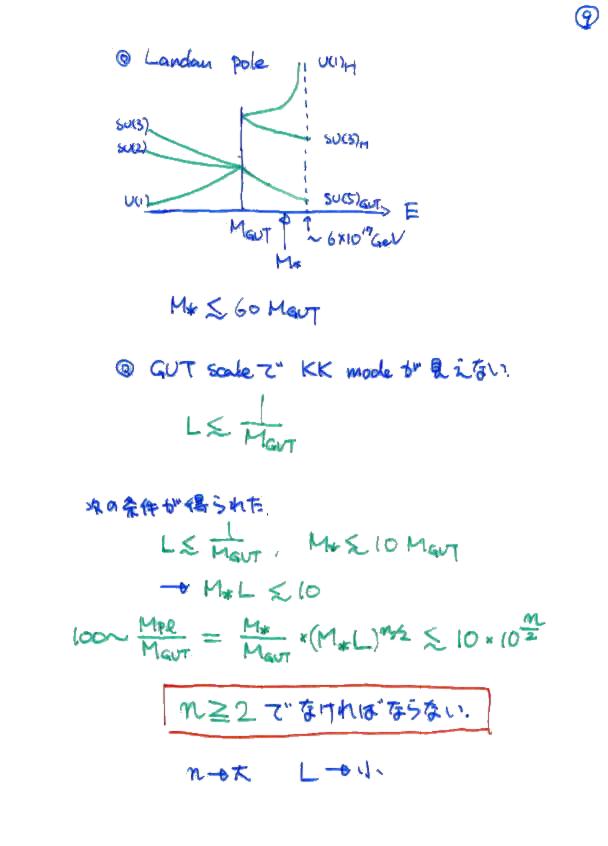 9
◎ Landau pole
U(1)H
SU(3)
SU(2)
SU(3)H
U(1)
SU(5)GUT
E
MGUT
~ 6×10¹⁷GeV
M*
M* ≲ 60 MGUT
◎ GUT scaleで KK modeが見えない.
L ≲ 1/MGUT
次の条件が得られた.
L ≲ 1/MGUT , M* ≲ 10 MGUT
→ M*L ≲ 10
100~ Mpl/MGUT = M*/MGUT × (M*L)^n/2 ≲ 10 × 10^n/2
n ≧ 2 でなければならない.
n→大 L→小